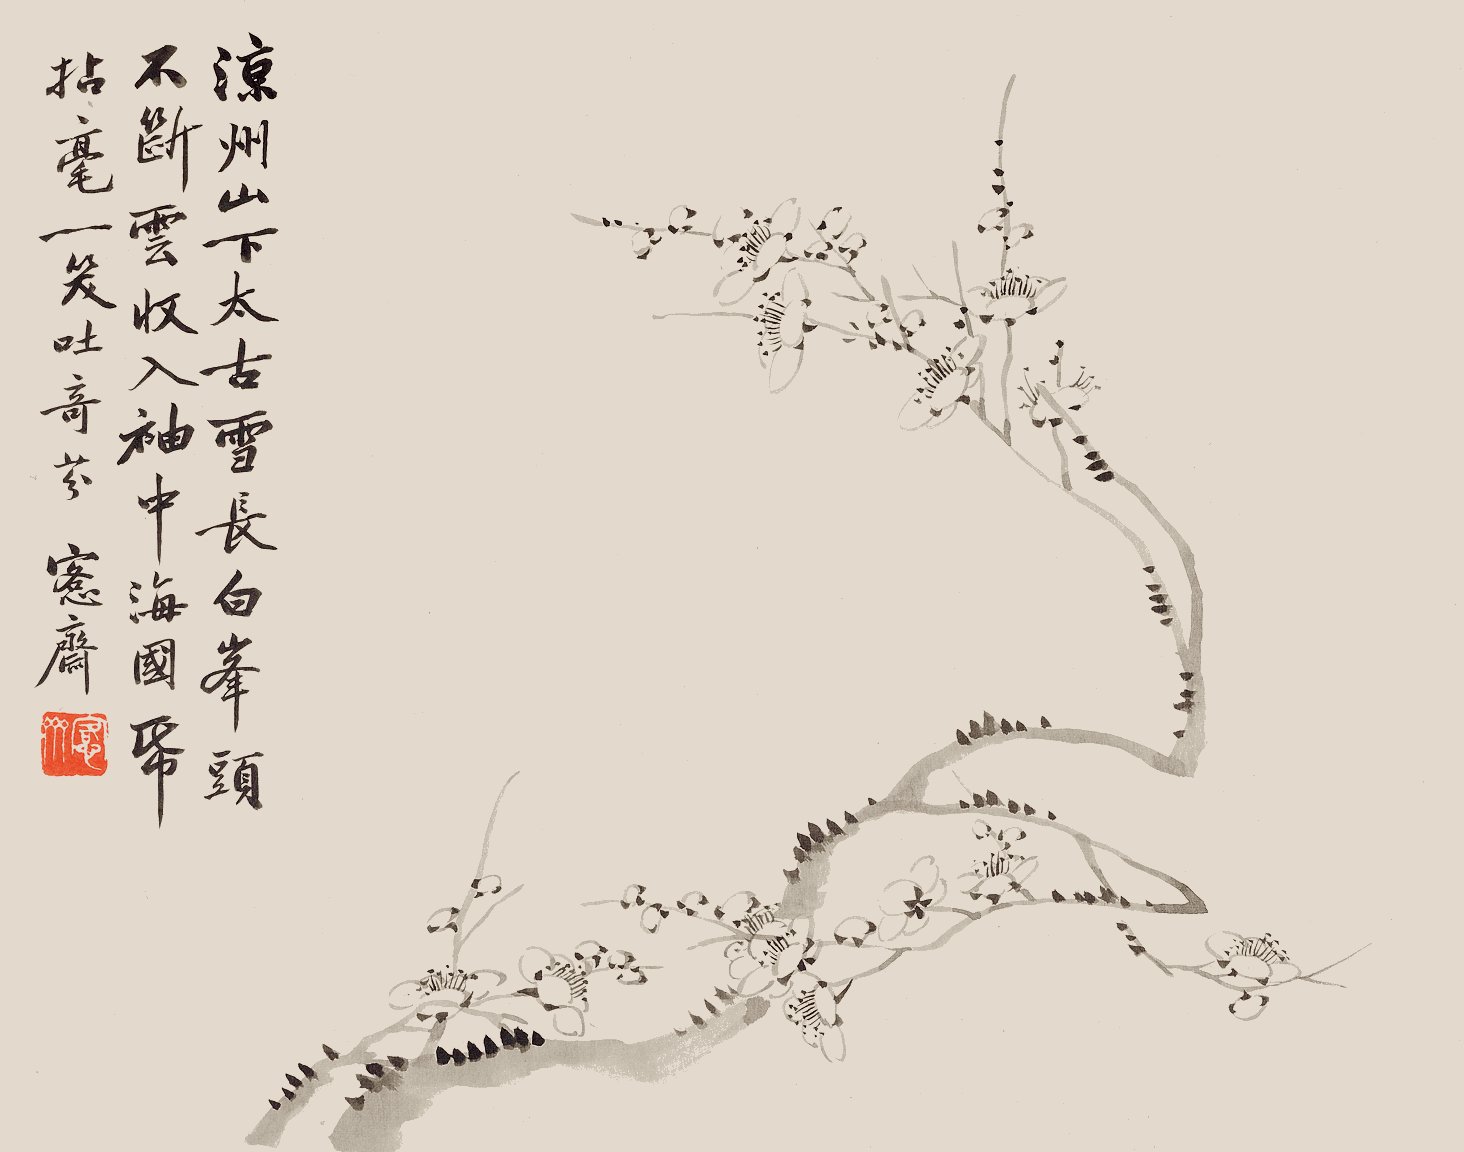 涼州山下太古雪長白峯頭
不斷雲收入袖中海國帋
拈毫一笑吐竒芬 愙齋